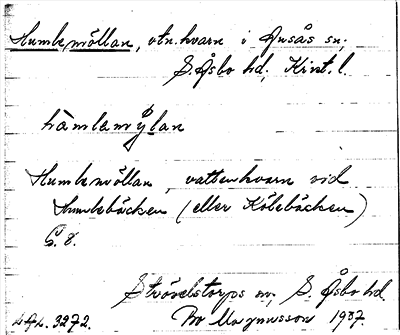 Humlemöllan, vtn.kvarn i Ausås sn,
S. Åsbo hd, Krist. l.
håmlamỹlan
Humlemöllan, vattenkvarn vid
Humlebäcken (eller Kölebäcken)
G. 8.
Strövelstorps sn, S. Åsbo hd.
L.A.L. 3272. Bo Magnusson 1937.